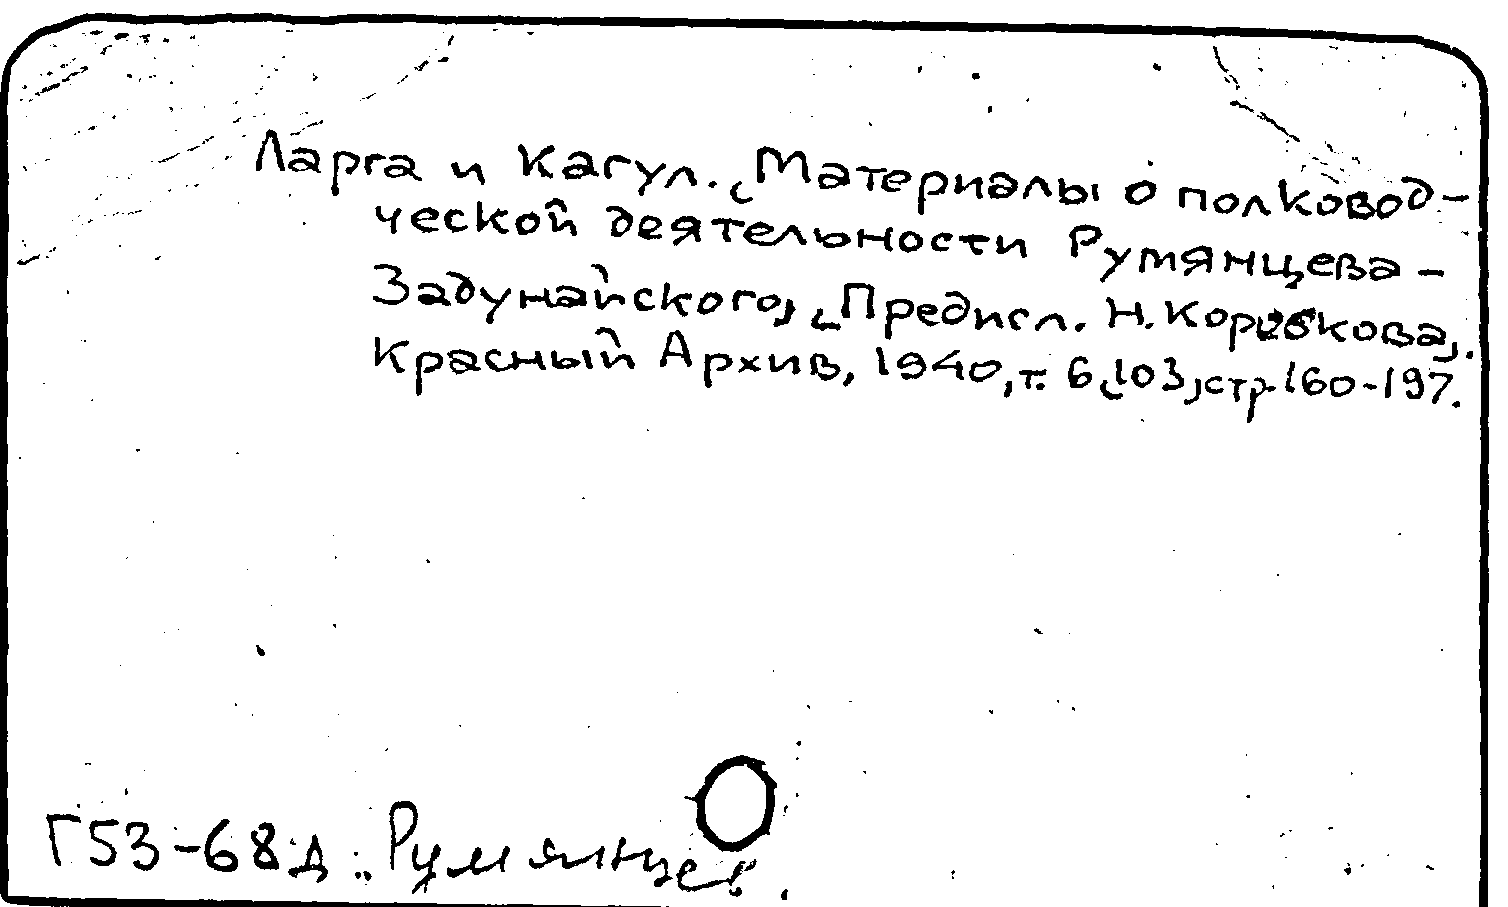 Ларга и Кагул. (Материалы о полковод-
ческой деятельности Румянцева-
Задунайского), (Предисл. Н. Коробкова).
Красный Архив, 1940, т. 6(103), стр. 160-197.
Г53-68д. Румянцев.